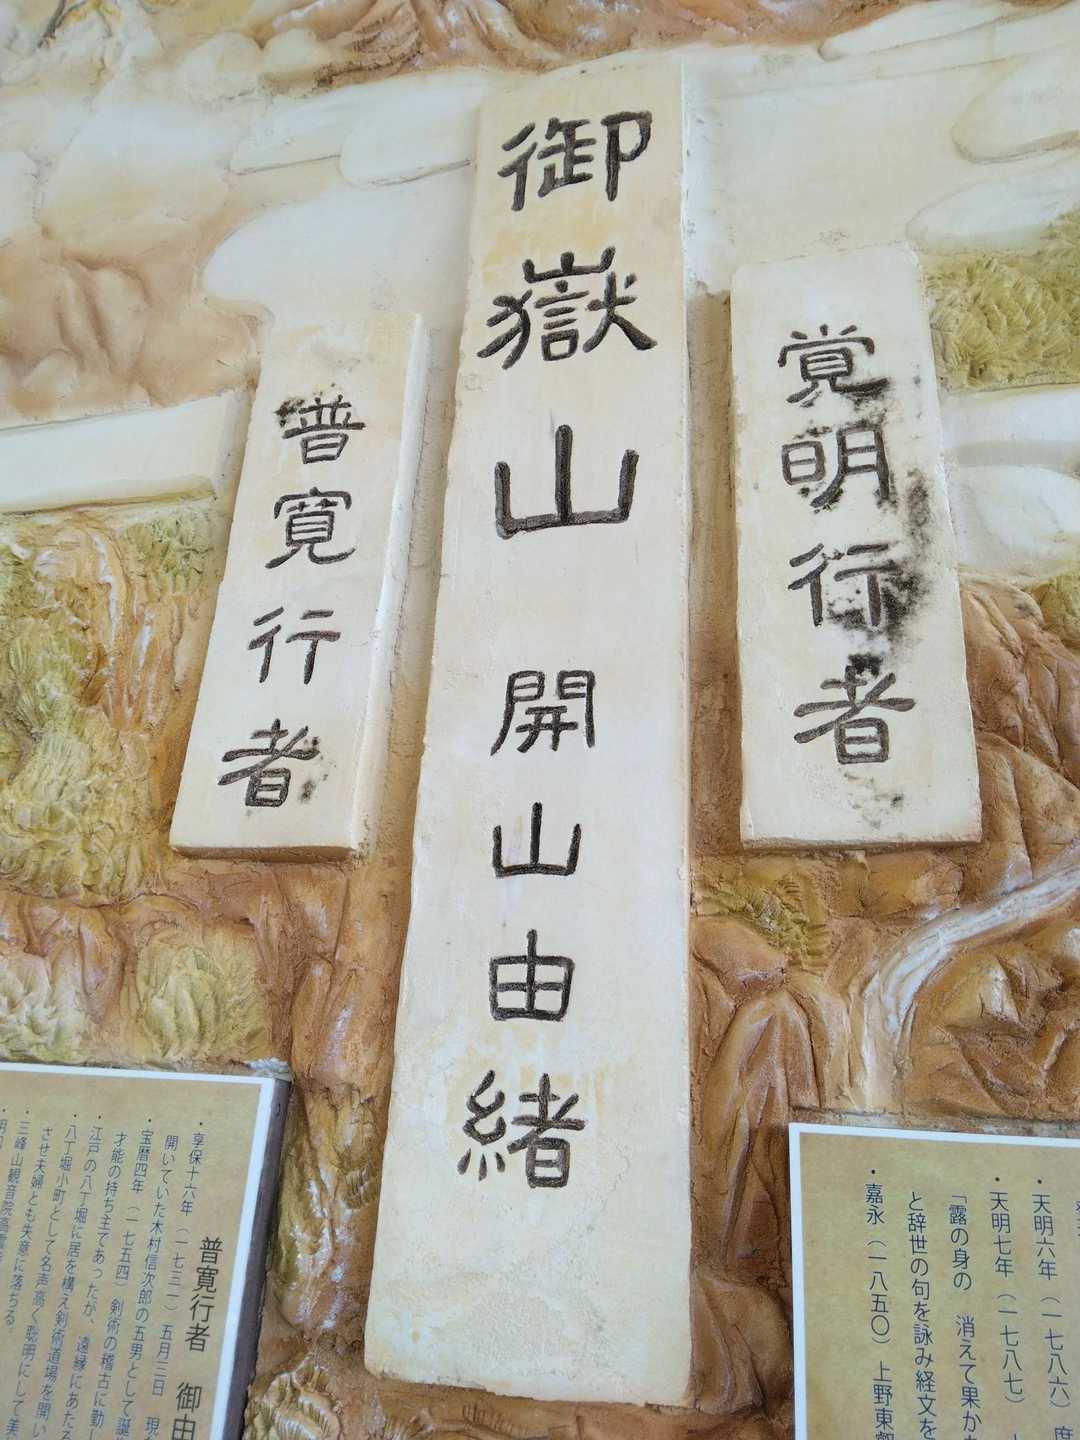 覚明行者
御嶽山 開山由緒
普寛行者
天明六年（一七八六）
天明七年（一七八七）
「露の身の 消えて果か
と辞世の句を詠み経文を
・嘉永（一八五〇）上野東叡
普寛行者 御由
・享保十六年（一七三一）五月三日 現
開いていた木村信次郎の五男として誕
・宝暦四年（一七五四）剣術の稽古に勤し
才能の持ち主であったが、遠縁にあたる
・江戸の八丁堀に居を構え剣術道場を開い
・八丁堀小町として名声高く聡明にして美
させ夫婦とも失意に落ちる
・三峰山観音院高雲